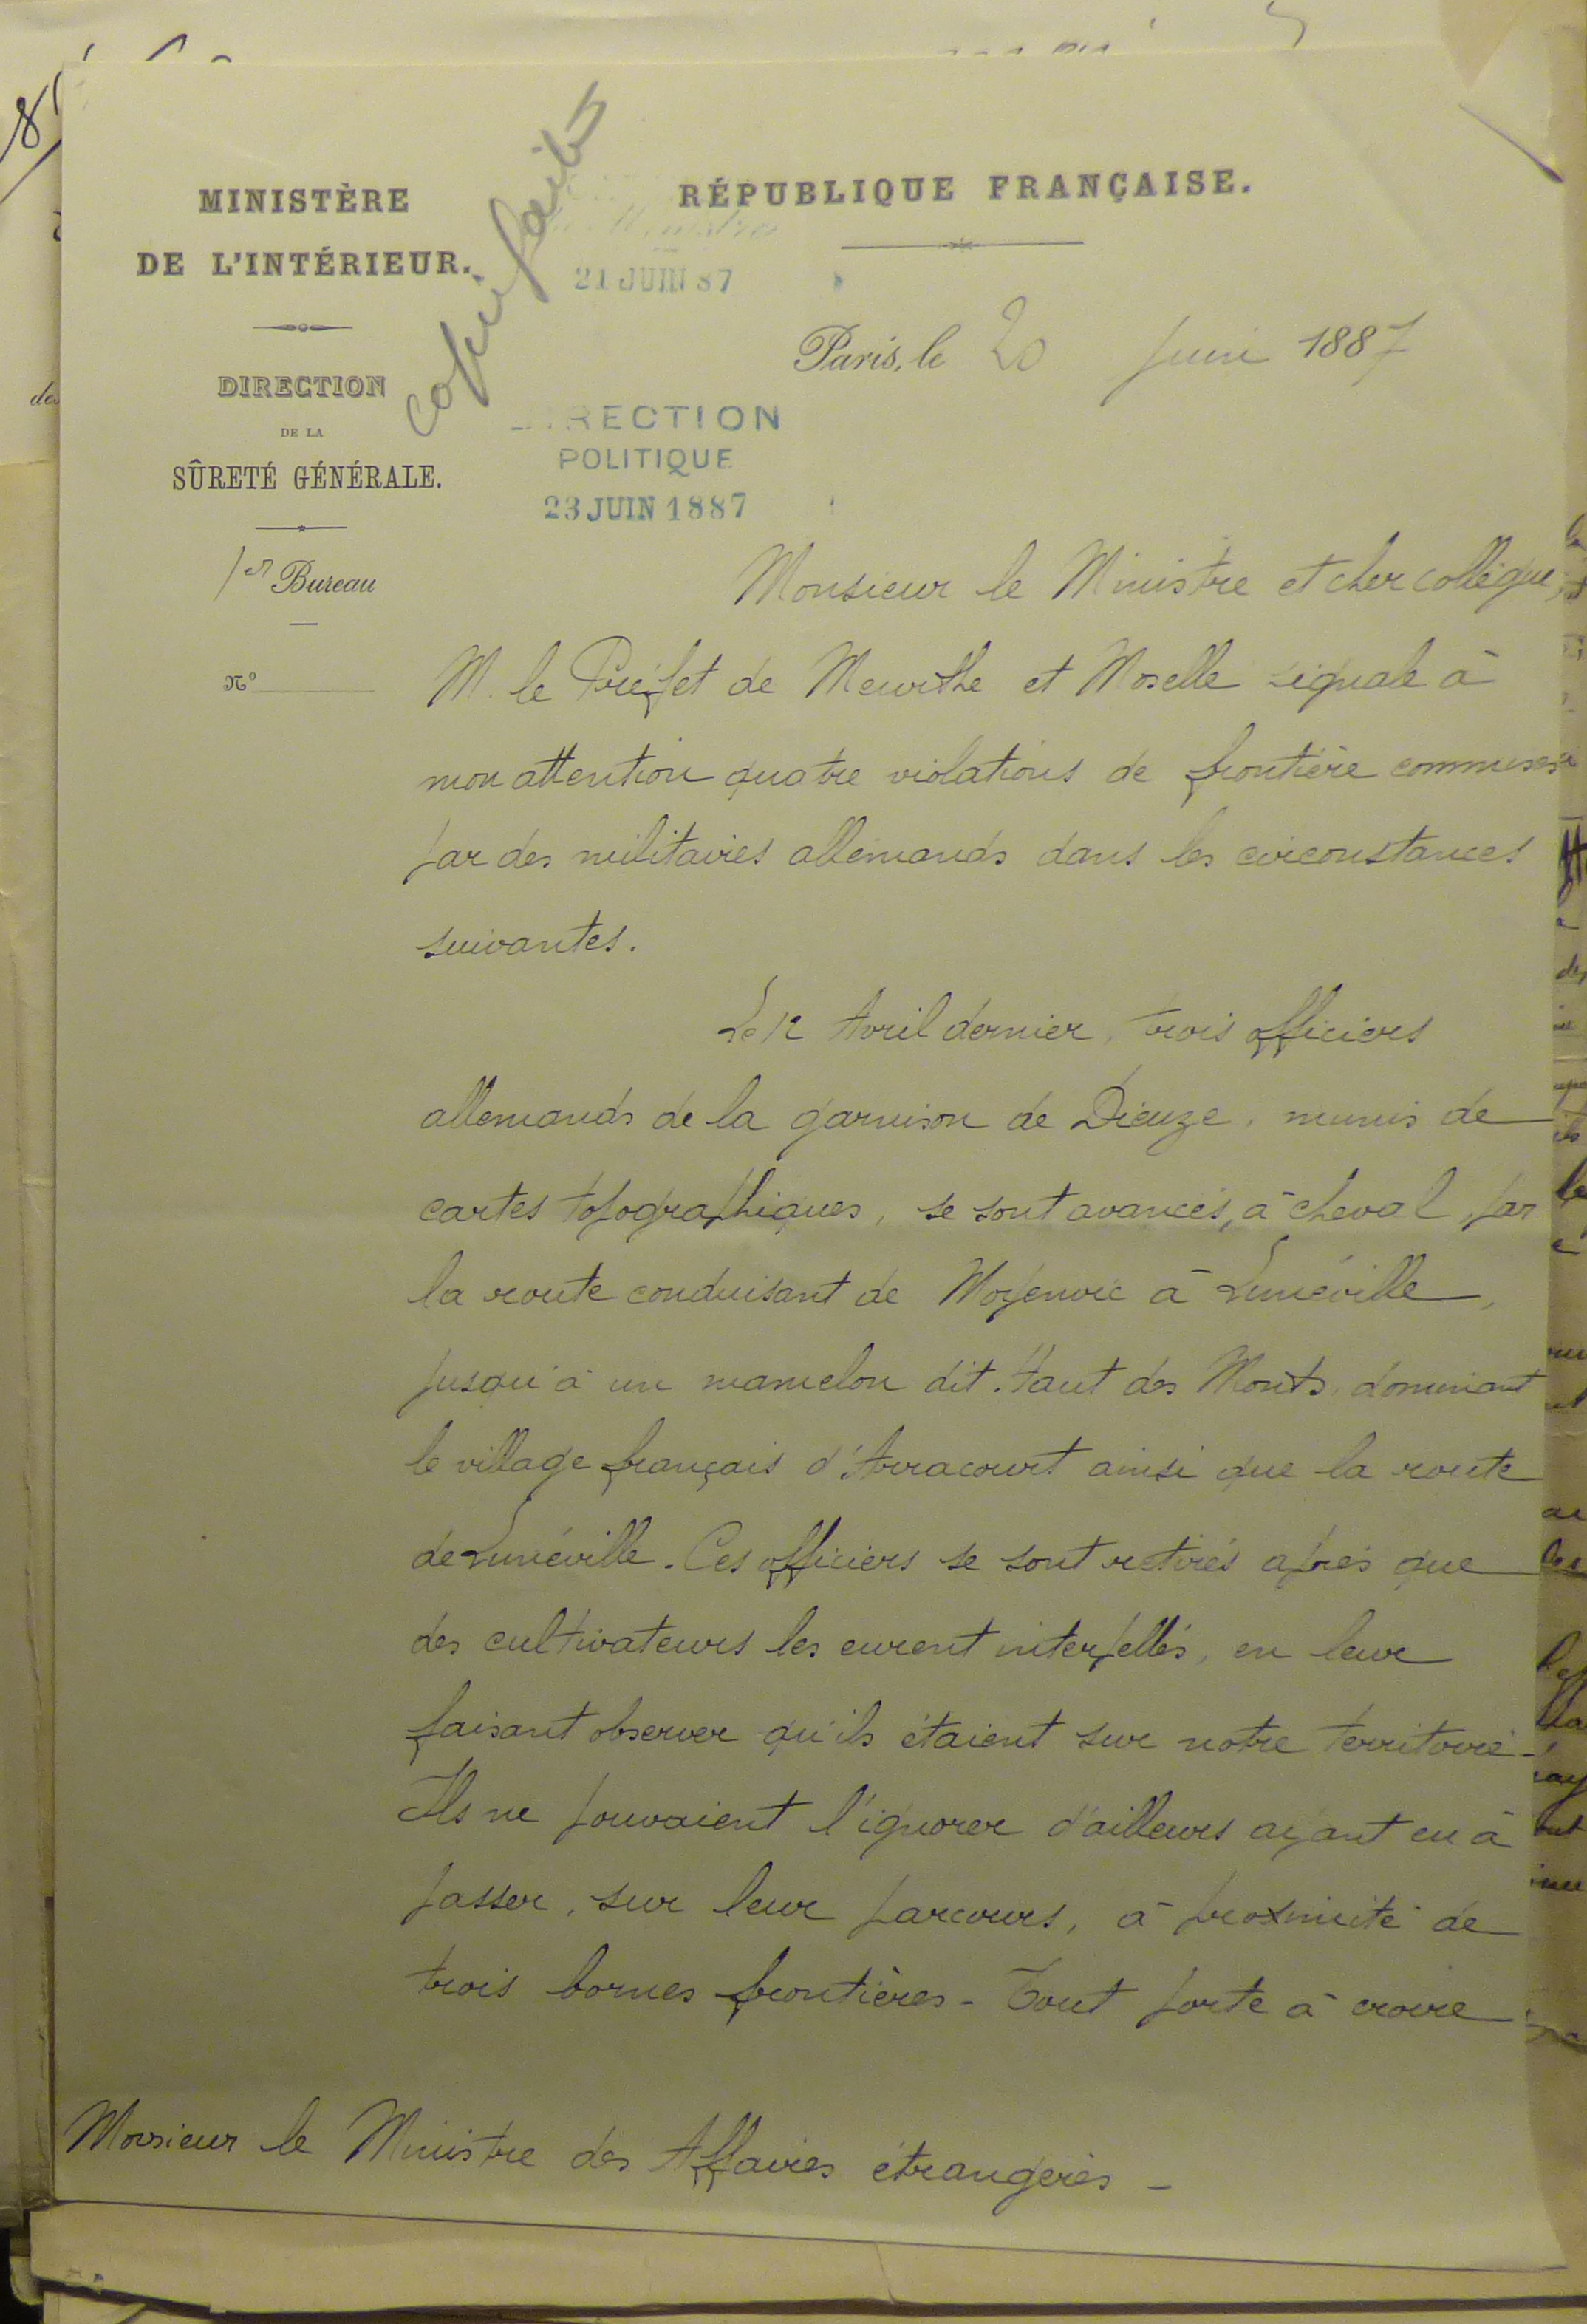 MINISTÈRE
DE L'INTÉRIEUR.
DIRECTION
DE LA
SÛRETÉ GÉNÉRALE.
1er Bureau
No
copie faite
RÉPUBLIQUE FRANÇAISE.
21 JUIN 87
Paris, le 20 Juin 1887
DIRECTION
POLITIQUE
23 JUIN 1887
Monsieur le Ministre et cher collègue,
M. le Préfet de Meurthe et Moselle signale à
mon attention quatre violations de frontière commises
par des militaires allemands dans les circonstances
suivantes.
Le 12 Avril dernier, trois officiers
allemands de la garnison de Dieuze, munis de
cartes topographiques, se sont avancés, à cheval, par
la route conduisant de Moyenvic à Lunéville,
jusqu'à un mamelon dit Haut des Monts, dominant
le village français d'Arracourt ainsi que la route
de Lunéville. Ces officiers se sont retirés après que
des cultivateurs les eurent interpellés, en leur
faisant observer qu'ils étaient sur notre territoire -
Ils ne pouvaient l'ignorer d'ailleurs ayant eu à
passer, sur leur parcours, à proximité de
trois bornes frontières - Tout porte à croire
Monsieur le Ministre des Affaires étrangères -